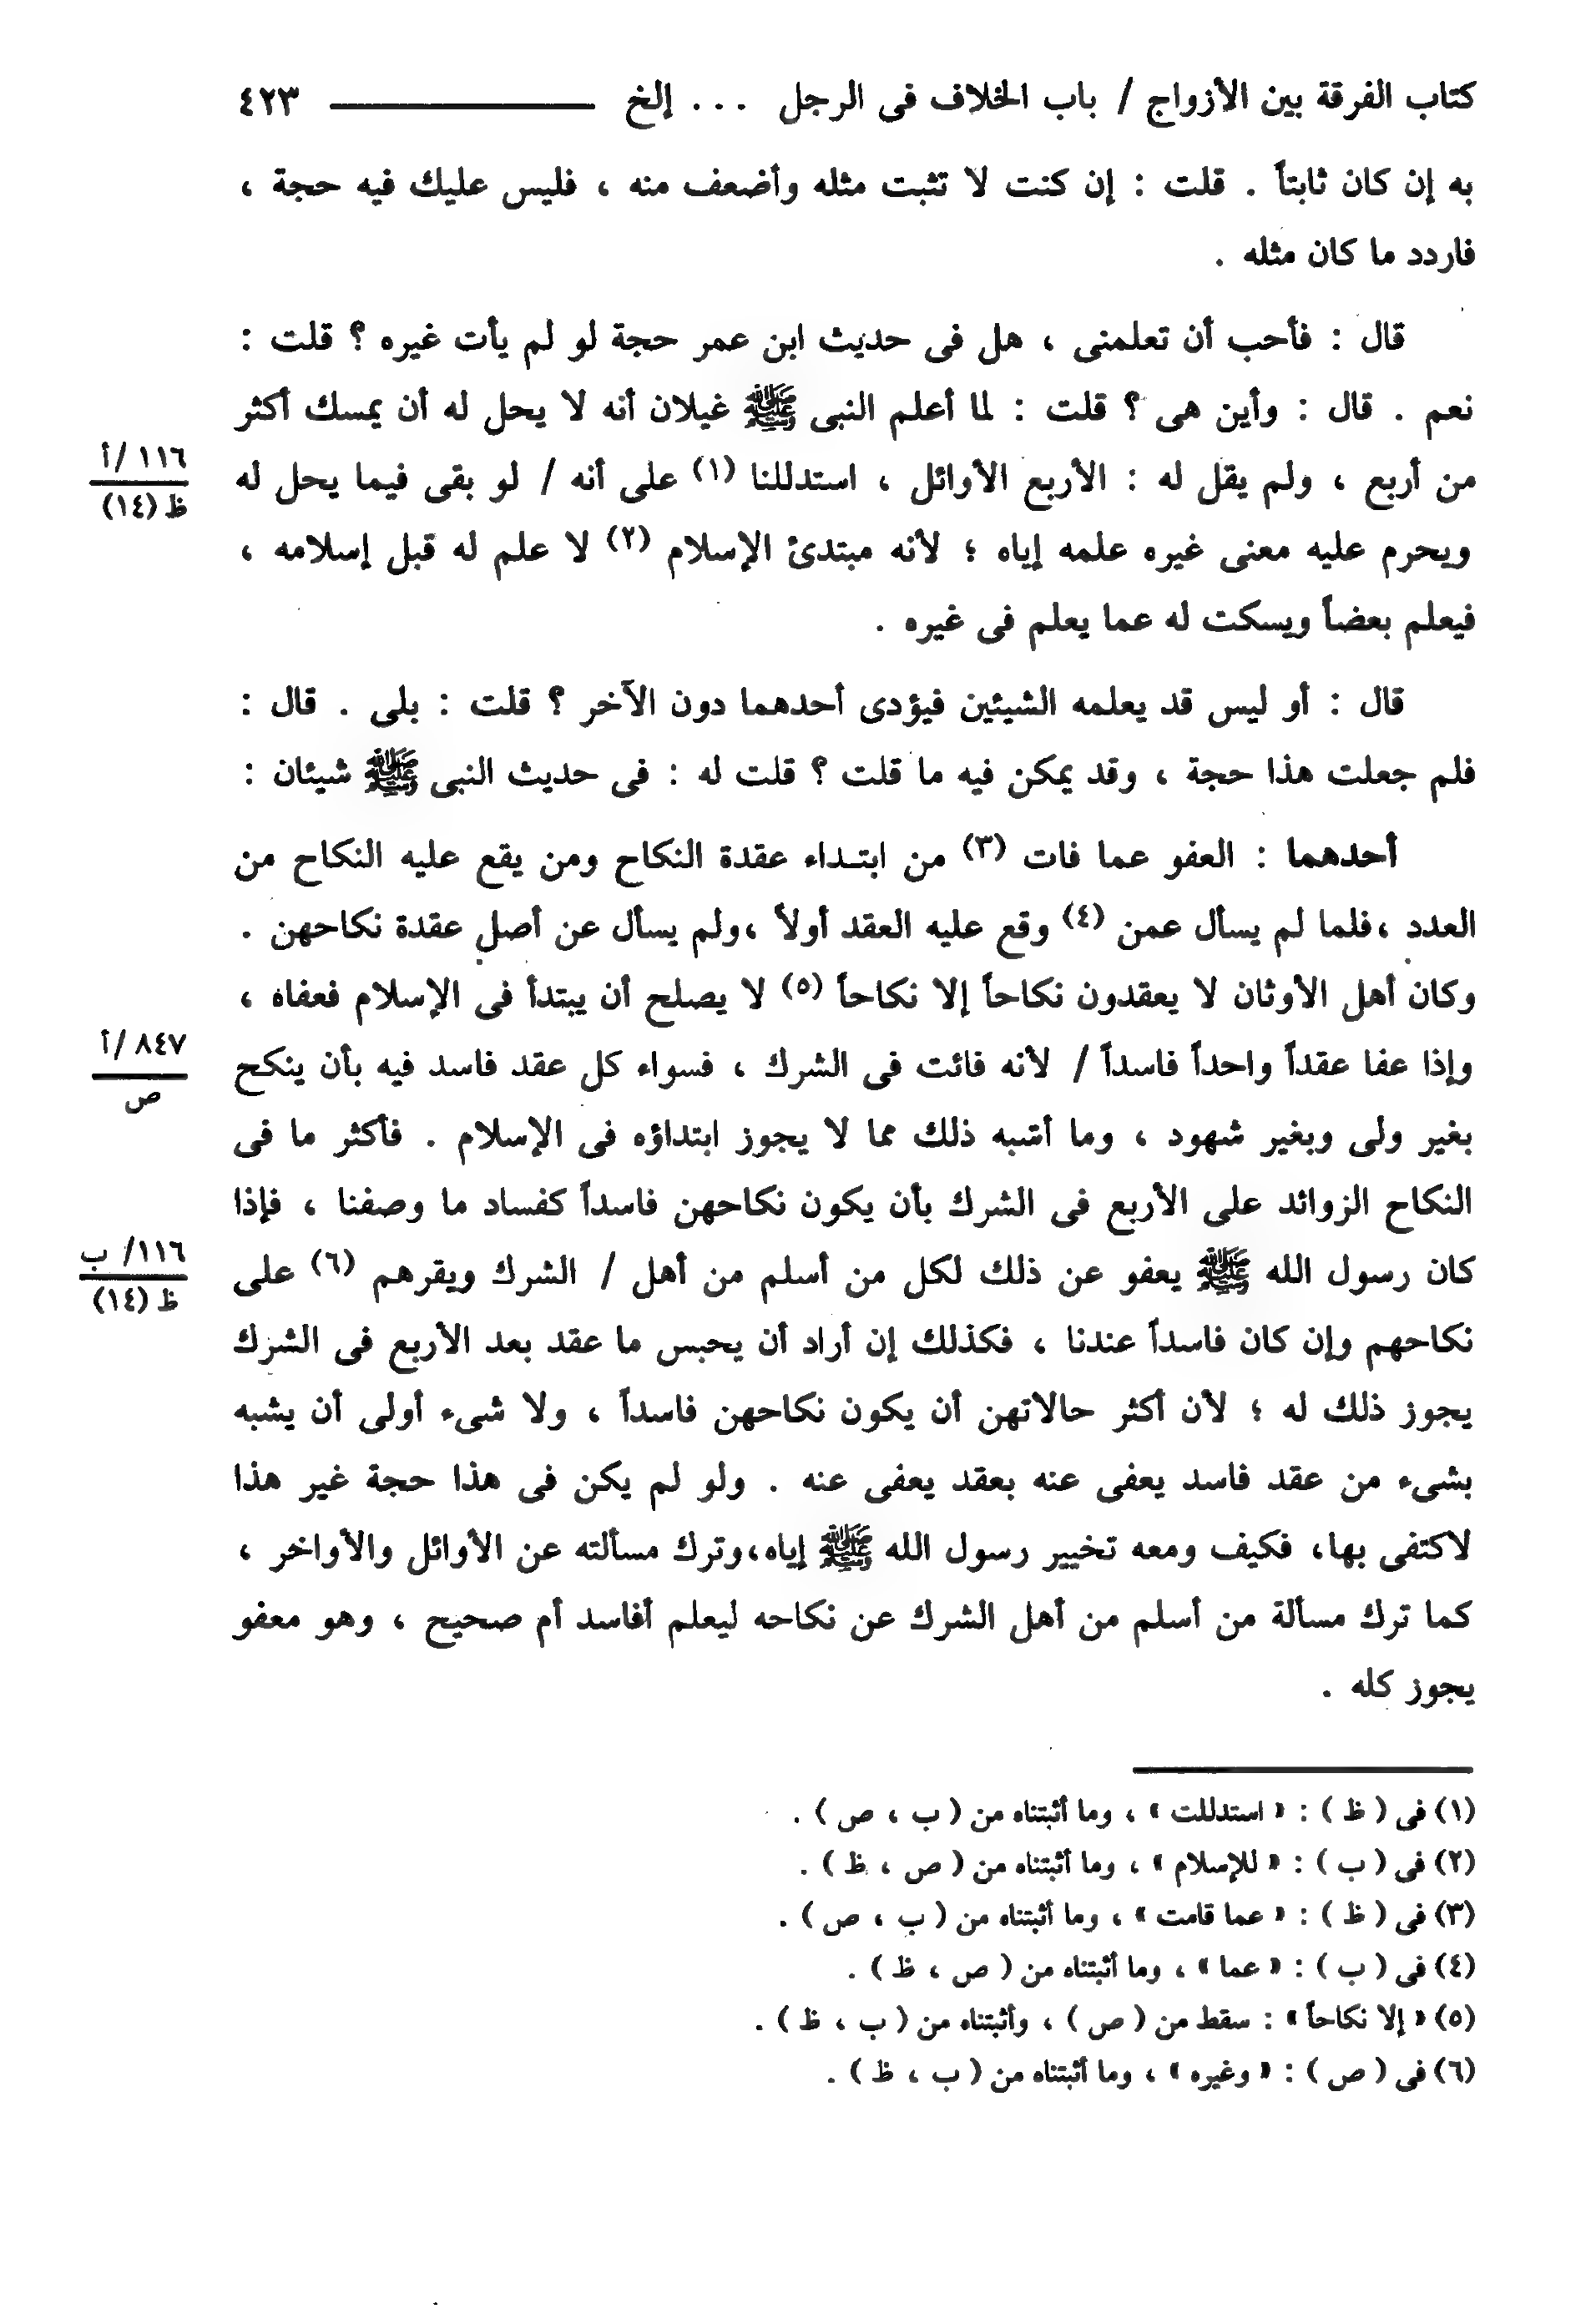 كتاب الفرقة بين الأزواج / باب الخلاف فى الرجل ... إلخ ٤٢٣
به إن كان ثابتاً . قلت : إن كنت لا تثبت مثله وأضعف منه ، فليس عليك فيه حجة ،
فاردد ما كان مثله .
قال : فأحب أن تعلمنى ، هل فى حديث ابن عمر حجة لو لم يأت غيره ؟ قلت :
نعم . قال : وأين هى ؟ قلت : لما أعلم النبى ﷺ غيلان أنه لا يحل له أن يمسك أكثر
من أربع ، ولم يقل له : الأربع الأوائل ، استدللنا (١) على أنه / لو بقى فيما يحل له
١١٦ /أ
ظ (١٤)
ويحرم عليه معنى غيره علمه إياه ؛ لأنه مبتدئ الإسلام (٢) لا علم له قبل إسلامه ،
فيعلم بعضاً ويسكت له عما يعلم فى غيره .
قال : أو ليس قد يعلمه الشيئين فيؤدى أحدهما دون الآخر ؟ قلت : بلى . قال :
فلم جعلت هذا حجة ، وقد يمكن فيه ما قلت ؟ قلت له : فى حديث النبى ﷺ شيئان :
أحدهما : العفو عما فات (٣) من ابتـداء عقدة النكاح ومن يقع عليه النكاح من
العدد ،فلما لم يسأل عمن (٤) وقع عليه العقد أولاً ،ولم يسأل عن أصل عقدة نكاحهن .
وكان أهل الأوثان لا يعقدون نكاحاً إلا نكاحاً (٥) لا يصلح أن يبتدأ فى الإسلام فعفاه ،
وإذا عفا عقداً واحداً فاسداً / لأنه فائت فى الشرك ، فسواء كل عقد فاسد فيه بأن ينكح
٨٤٧ /أ
ص
بغير ولى وبغير شهود ، وما أشبه ذلك مما لا يجوز ابتداؤه فى الإسلام . فأكثر ما فى
النكاح الزوائد على الأربع فى الشرك بأن يكون نكاحهن فاسداً كفساد ما وصفنا ، فإذا
كان رسول الله ﷺ يعفو عن ذلك لكل من أسلم من أهل / الشرك ويقرهم (٦) على
١١٦/ ب
ظ (١٤)
نكاحهم وإن كان فاسداً عندنا ، فكذلك إن أراد أن يحبس ما عقد بعد الأربع فى الشرك
يجوز ذلك له ؛ لأن أكثر حالاتهن أن يكون نكاحهن فاسداً ، ولا شىء أولى أن يشبه
بشىء من عقد فاسد يعفى عنه بعقد يعفى عنه . ولو لم يكن فى هذا حجة غير هذا
لاكتفى بها، فكيف ومعه تخيير رسول الله ﷺ إياه،وترك مسألته عن الأوائل والأواخر ،
كما ترك مسألة من أسلم من أهل الشرك عن نكاحه ليعلم أفاسد أم صحيح ، وهو معفو
يجوز كله .
(١) فى ( ظ ) : « استدللت » ، وما أثبتناه من ( ب ، ص ) .
(٢) فى ( ب ) : « للإسلام » ، وما أثبتناه من ( ص ، ظ ) .
(٣) فى ( ظ ) : « عما قامت » ، وما أثبتناه من ( ب ، ص ) .
(٤) فى ( ب ) : « عما » ، وما أثبتناه من ( ص ، ظ ) .
(٥) « إلا نكاحاً » : سقط من ( ص ) ، وأثبتناه من ( ب ، ظ ) .
(٦) فى ( ص ) : « وغيره » ، وما أثبتناه من ( ب ، ظ ) .